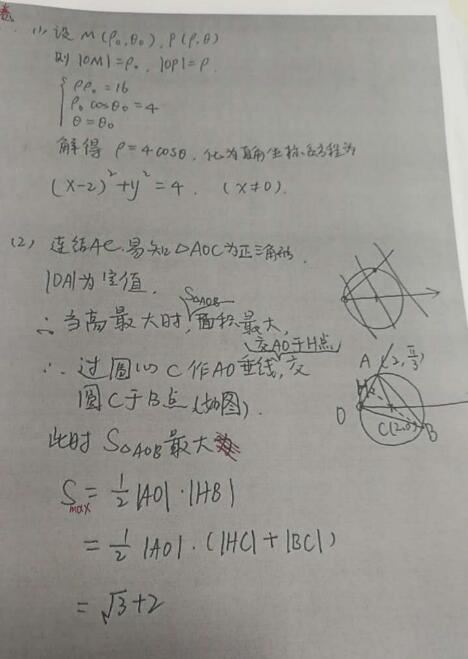 卷
(1) 设 M(ρ₀,θ₀), P(ρ,θ)
则 |OM|=ρ₀, |OP|=ρ.
{ ρρ₀=16
ρ₀cosθ₀=4
θ=θ₀
解得 ρ=4cosθ, 化为直角坐标系方程为
(x-2)²+y²=4. (x≠0).
(2) 连结AC.易知△AOC为正三角形.
|OA|为定值.
∴当高最大时, S△AOB 面积最大,
∴过圆心C作AO垂线,交AO于H点,交
圆C于B点(如图).
此时 S△AOB最大
Smax=½|AO|·|HB|
=½|AO|·(|HC|+|BC|)
=√3+2
A (2, π/3)
H
O
C(2,0)
B